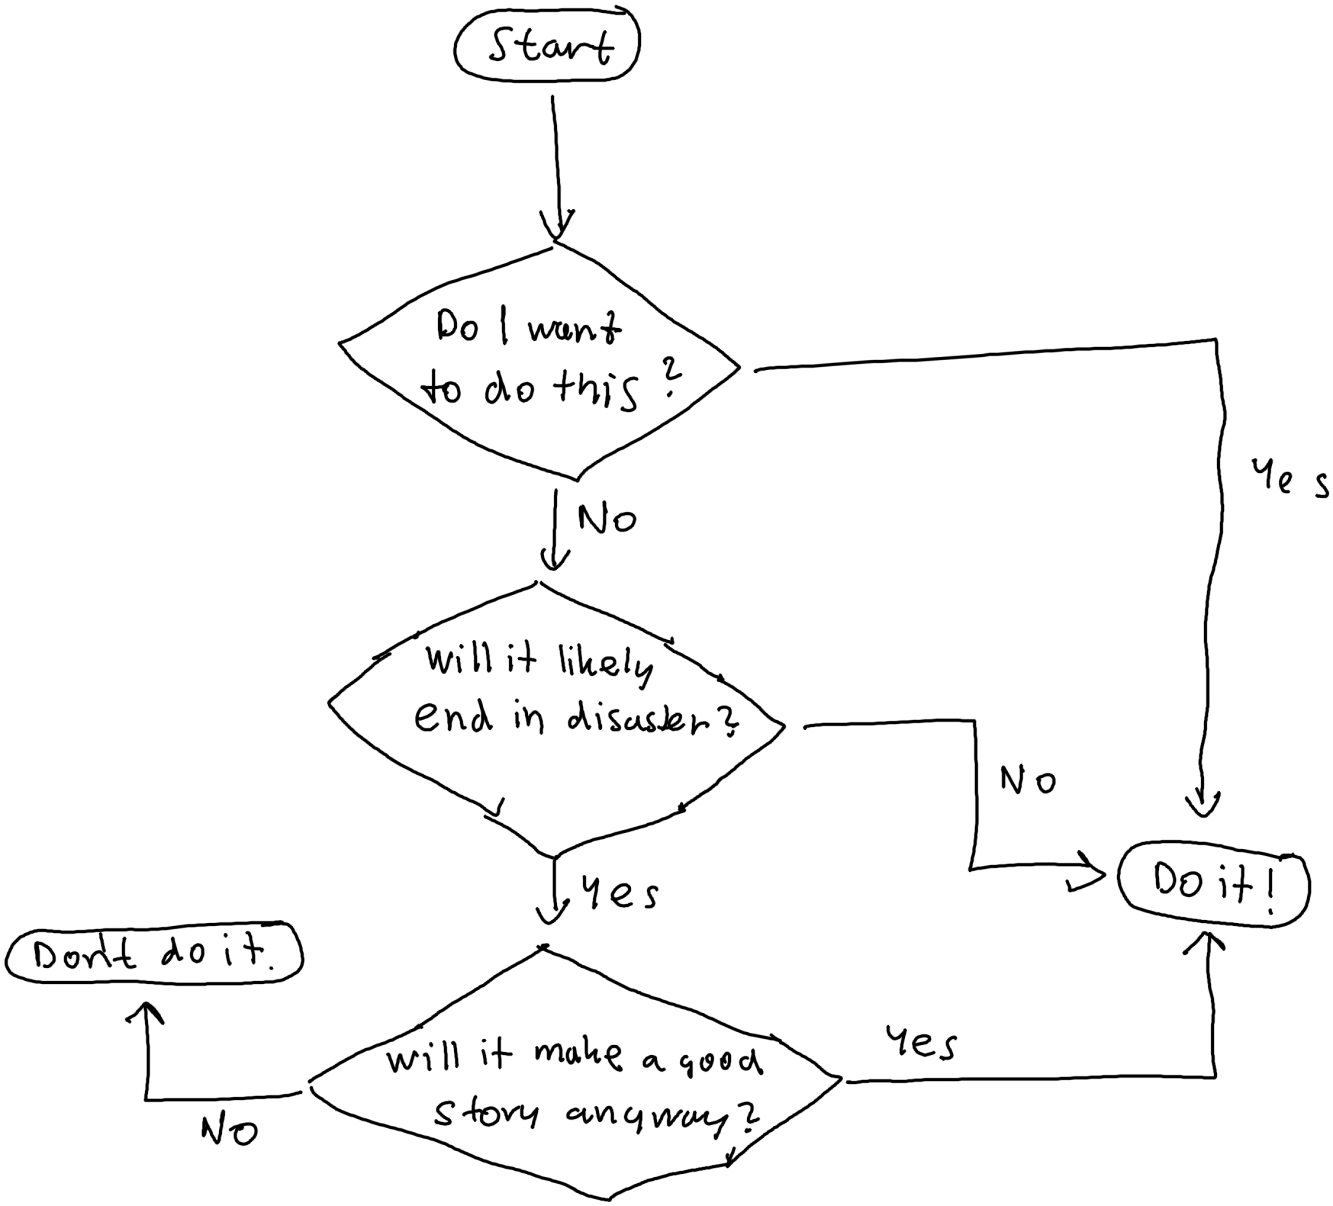 Start
Do I want
to do this?
Yes
No
Will it likely
end in disaster?
No
Do it!
Yes
Don't do it.
Will it make a good
story anyway?
Yes
No